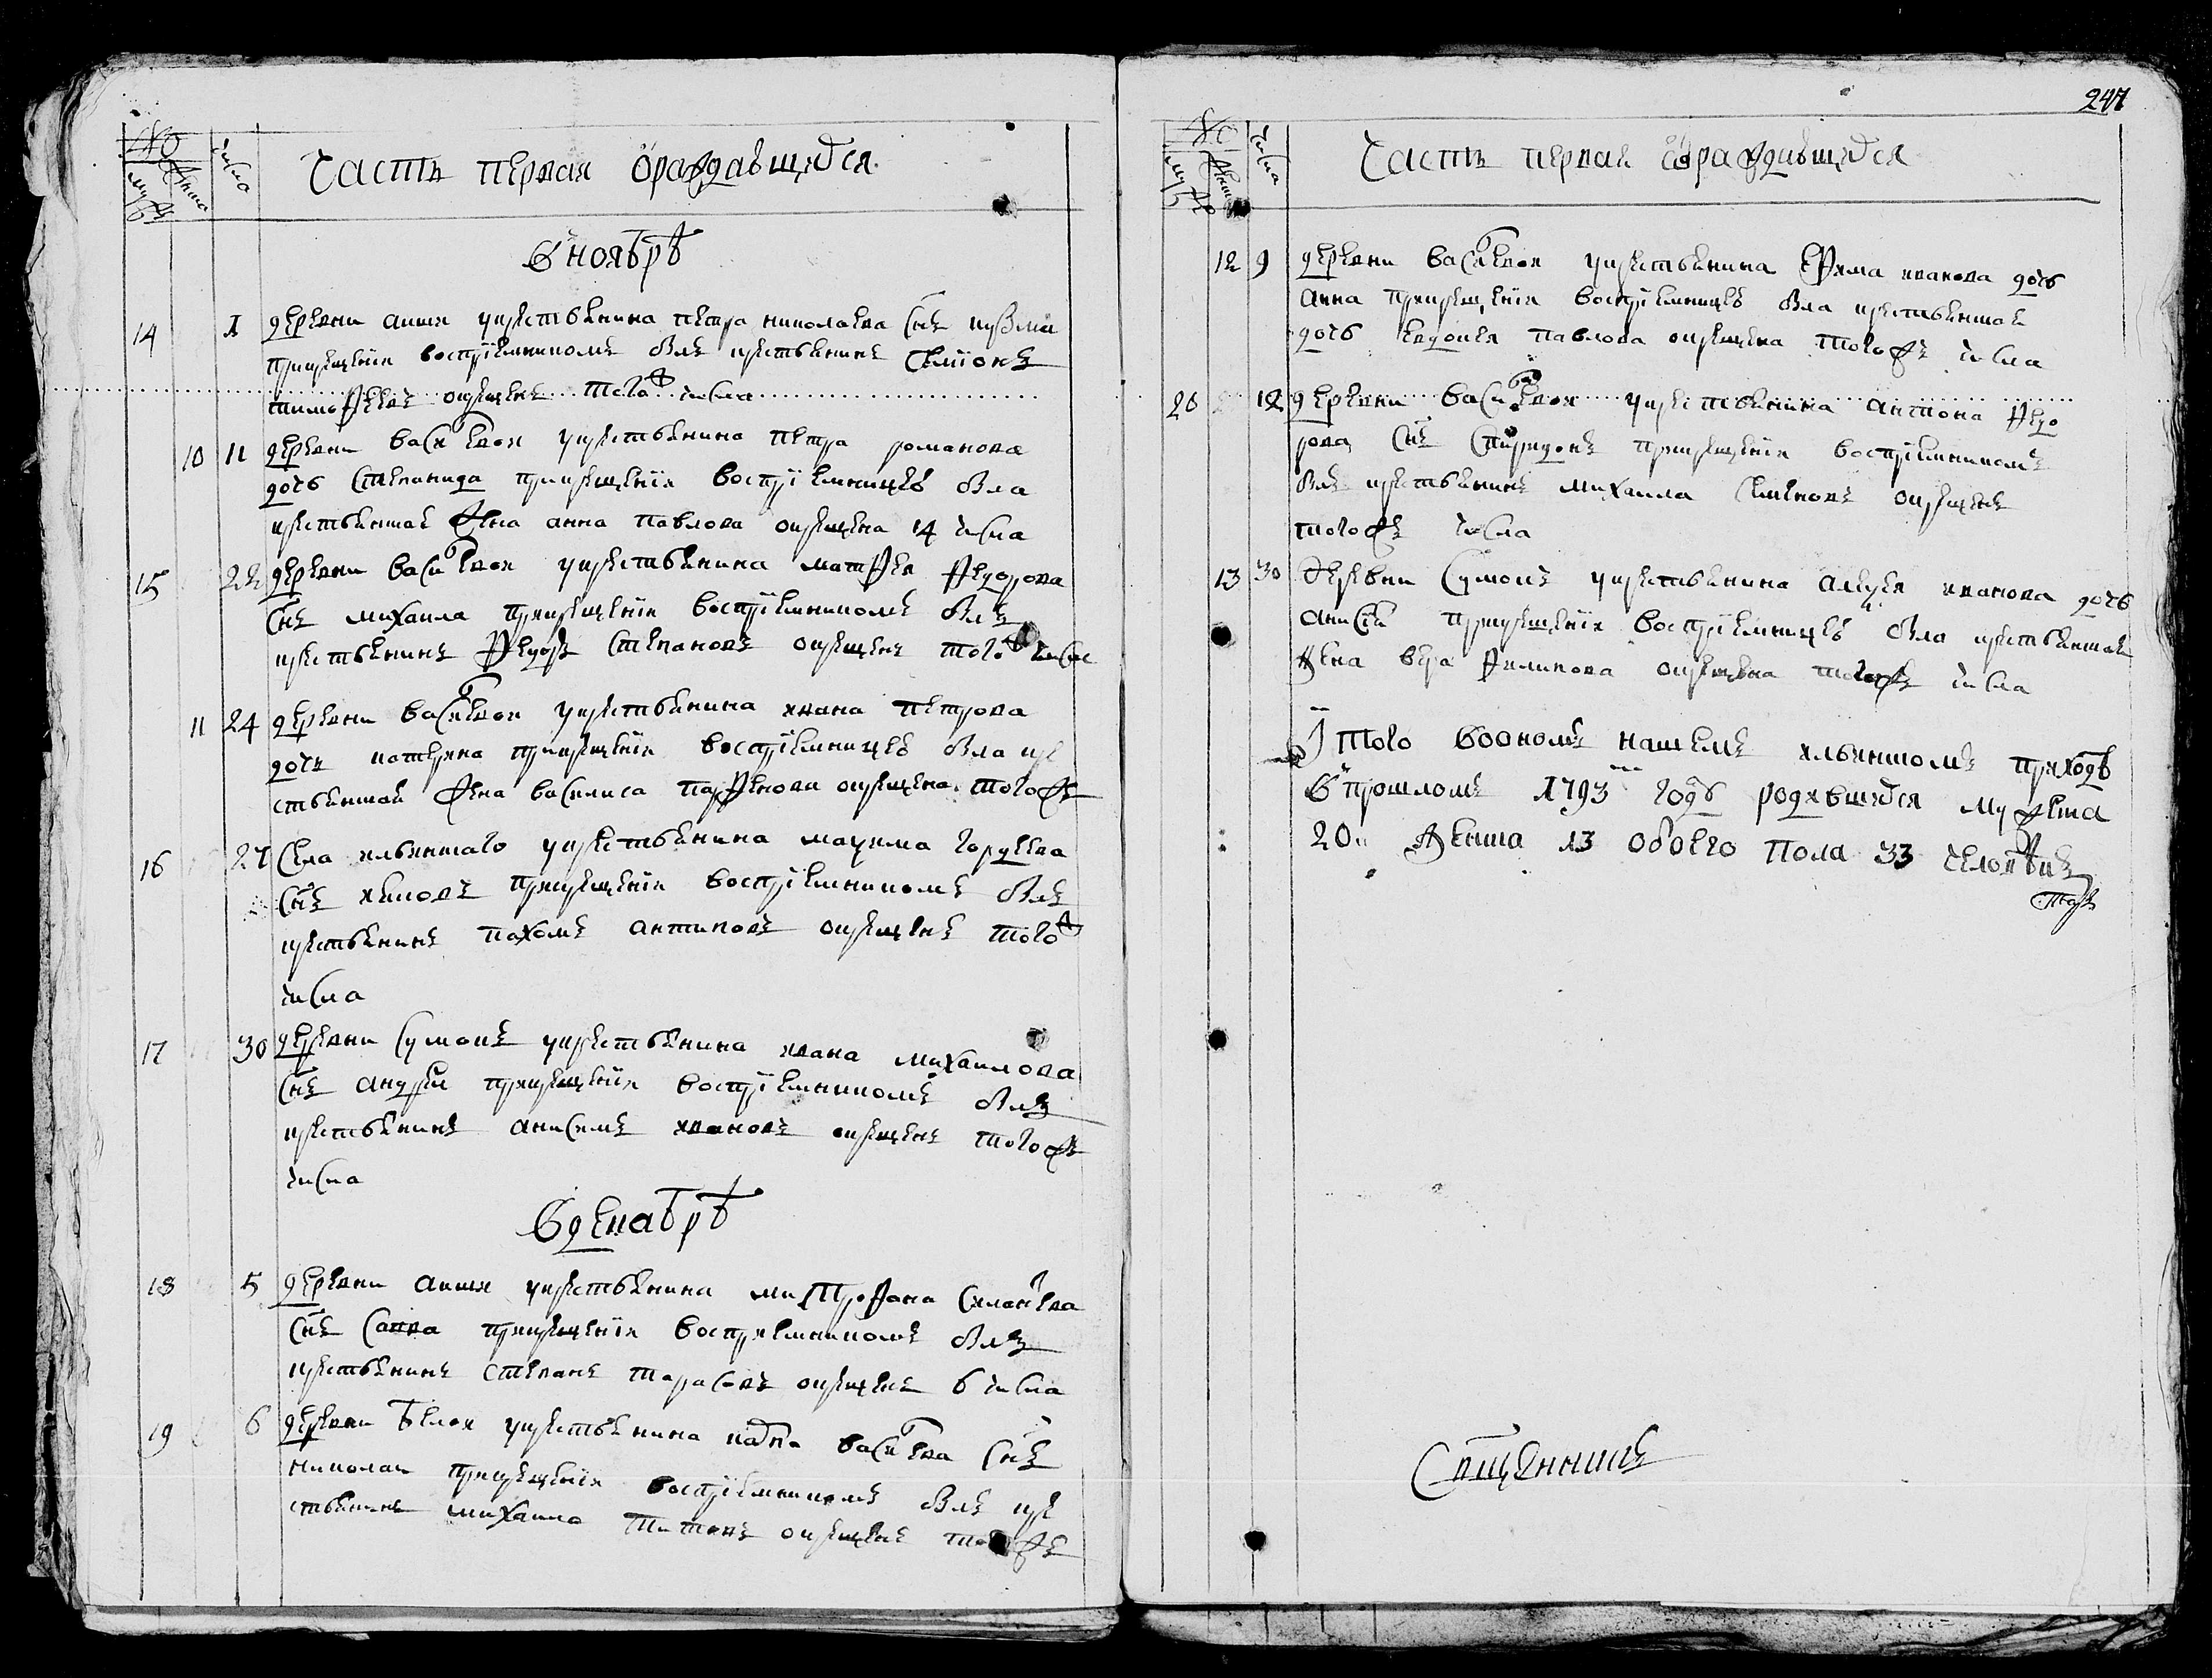 №
мужеска
женска
число
Часть первая ѡраждающихся
В ноябрѣ
14 1 деревни акши у крестьянина петра николаева снъ кузма
при крещеніи воспріемникомъ былъ крестьянинъ семіонъ
тимофеевъ окрещенъ того ж числа
10 11 деревни васильевои у крестьянина петра романова
дочь степанида при крещеніи воспріемницею была
крестьянская жена анна павлова окрещена 14 числа
15 22 деревни васильевои у крестьянина матфея федорова
снъ михаила при крещеніи воспріемникомъ былъ
крестьянинъ федоръ степановъ окрещенъ того ж числа
11 24 деревни васильевои у крестьянина ивана петрова
дочь катерина при крещеніи воспріемницею была кре
стьянская жена василиса парфенова окрещена того же
16 27 села ильинскаго у крестьянина маркима гордеева
снъ иаковъ при крещеніи воспріемникомъ былъ
крестьянинъ пахомъ антиповъ окрещенъ того ж
числа
17 30 деревни сумокъ у крестьянина ивана михаилова
снъ андреи при крещеніи воспріемникомъ былъ
крестьянинъ анисимъ ивановъ окрещенъ того же
числа
В декабрѣ
18 5 деревни акши у крестьянина митрофана силантева
снъ савва при крещеніи воспріемникомъ былъ
крестьянинъ степанъ тарасовъ окрещенъ 6 числа
19 6 деревни белои у крестьянина васильева снъ
николаи при крещеніи воспріемникомъ былъ кре
стьянинъ михаила титовъ окрещенъ того же
247
№
мужеска
женска
числа
Часть первая ѡраждающихся
12 9 деревни васильевои у крестьянина ефима иванова дочь
анна при крещеніи воспріемницею была крестьянская
дочь евдокея павлова окрещена того же числа
20 12 деревни васильевои у крестьянина антона федо
рова снъ спиридонъ при крещеніи воспріемникомъ
былъ крестьянинъ михаила семеновъ окрещенъ
того же числа
13 30 деревни сумокъ у крестьянина алексея иванова дочь
анисия при крещеніи воспріемницею была крестьянская
жена вера филипова окрещена того же числа
Итого во ономъ нашемъ ильинскомъ приходѣ
в прошломъ 1793 годѣ родившихся мужеска
20. женска 13 обоего пола 33 человѣка
Священникъ